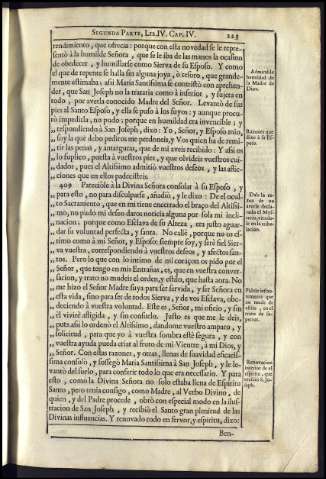 SEGUNDA PARTE, LIB. IV. CAP. IV. 225
rendimiento, que ofrecia: porque con esta novedad se le repre-
sentò à la humilde Señora, que se le iba de las manos la ocasion
de obedecer, y humillarse como Sierva de su Esposo. Y como
el que de repente se halla sin alguna joya, ò tesoro, que grande-
mente estimaba, asi Maria Santissima se contristò con aprehen-
der, que San Joseph no la trataria como à inferior, y sujeta en
todo, por averla conocido Madre del Señor. Levantò de sus
pies al Santo Esposo, y ella se puso à los suyos: y aunque procu-
rò impedirla, no pudo; porque en humildad era invencible; y
respondiendo à San Joseph, dixo: Yo, Señor, y Esposo mio,
soy la que debo pediros me perdoneis, y Vos quien ha de remi-
tir las penas, y amarguras, que de mi aveis recibido: Y asi os
lo suplico, puesta à vuestros pies, y que olvideis vuestros cui-
dados, pues el Altissimo admitiò vuestros deseos, y las aflic-
ciones que en ellos padecisteis.
409 Pareciòle à la Divina Señora consolar à su Esposo, y
para esto, no para disculparse, añadiò, y le dixo: De el ocul-
to Sacramento, que en mi tiene encerrado el braço del Altissi-
mo, no pudo mi deseo daros noticia alguna por sola mi incli-
nacion; porque como Esclava de su Alteza, era justo aguar-
dar su voluntad perfecta, y santa. No callè, porque no os es-
timo como à mi Señor, y Esposo: siempre soy, y serè fiel Sier-
va vuestra, correspondiendo à vuestros deseos, y afectos san-
tos. Pero lo que con lo intimo de mi coraçon os pido por el
Señor, que tengo en mis Entrañas, es, que en vuestra conver-
sacion, y trato no mudeis el orden, y estilo, que hasta aora. No
me hizo el Señor Madre suya para ser servida, y ser Señora en
esta vida, sino para ser de todos Sierva, y de Vos Esclava, obe-
deciendo à vuestra voluntad. Este es, Señor, mi oficio, y sin
èl vivirè afligida, y sin consuelo. Justo es que me le deis,
pues asi lo ordenò el Altissimo, dandome vuestro amparo, y
solicitud, para que yo à vuestra sombra estè segura, y con
vuestra ayuda pueda criar al fruto de mi Vientre, à mi Dios, y
Señor. Con estas razones, y otras, llenas de suavidad eficacis-
sima consolò, y sossegò Maria Santissima à San Joseph, y le le-
vantò del suelo, para conferir todo lo que era necesario. Y para
esto, como la Divina Señora no solo estaba llena de Espiritu
Santo, pero tenia consigo, como Madre, al Verbo Divino, de
quien, y del Padre procede, obrò con especial modo en la ilus-
tracion de San Joseph, y recibiò el Santo gran plenitud de las
Divinas influencias. Y renovado todo en fervor, y espiritu, dixo:
Ben-
Admirable
humildad de
la Madre de
Dios.